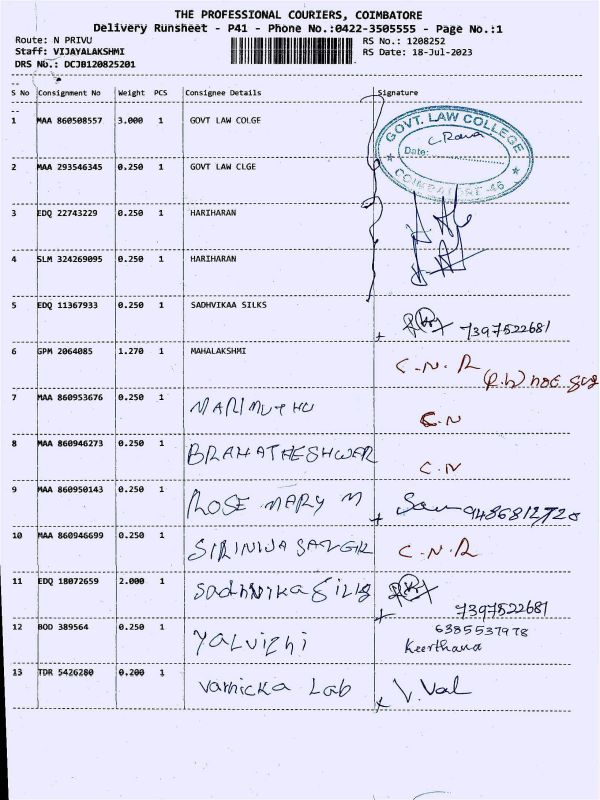 THE PROFESSIONAL COURIERS, COIMBATORE
Delivery Runsheet - P41 - Phone No.:0422-3505555 - Page No.:1
Route: N PRIVU RS No.: 1208252
Staff: VIJAYALAKSHMI RS Date: 18-Jul-2023
DRS No.: DCJB120825201
S No Consignment No Weight PCS Consignee Details Signature
1 MAA 860508557 3.000 1 GOVT LAW COLGE
GOVT. LAW COLLEGE
C. Rana
Date:
COIMBATORE-46
2 MAA 293546345 0.250 1 GOVT LAW CLGE
3 EDQ 22743229 0.250 1 HARIHARAN
4 SLM 324269095 0.250 1 HARIHARAN
5 EDQ 11367933 0.250 1 SADHVIKAA SILKS 7397522681
6 GPM 2064085 1.270 1 MAHALAKSHMI C.N.R
7 MAA 860953676 0.250 1 MARIMUTHU C.N
8 MAA 860946273 0.250 1 BRAHATHESHWER C.N
9 MAA 860950143 0.250 1 ROSE MARY M 9486812720
10 MAA 860946699 0.250 1 C.N.R
11 EDQ 18072659 2.000 1 Sadhvika Silks 7397522681
12 BOD 389564 0.250 1 Yalvizhi 6385537978
Keerthana
13 TDR 5426280 0.200 1 Varnicka Lab V.Val